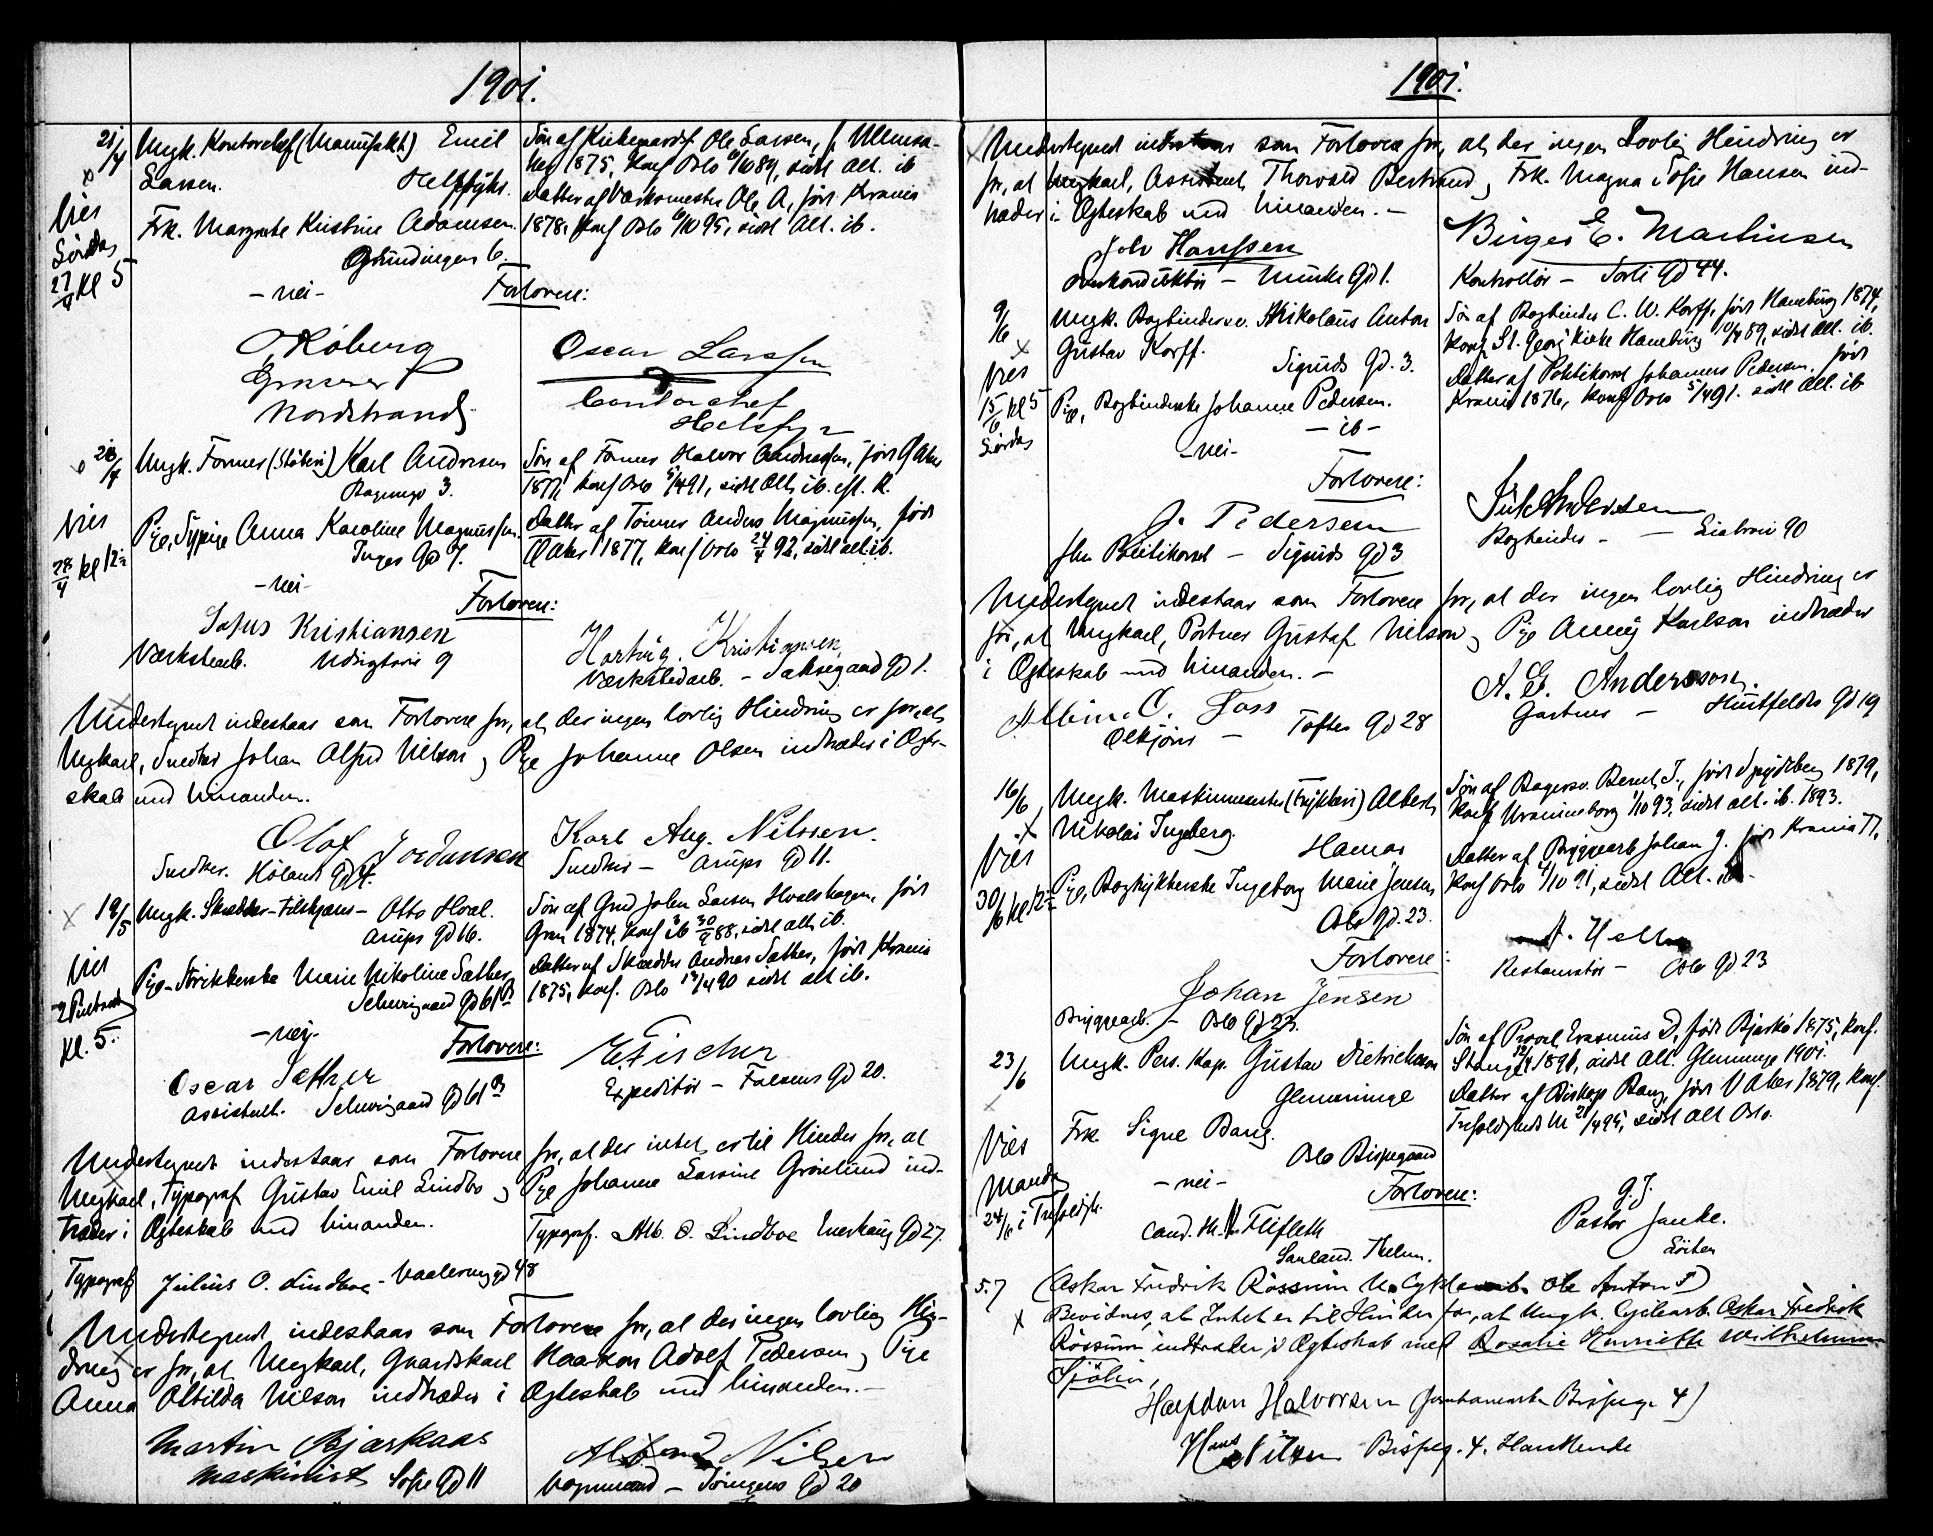 1901.
21/4 Ungk. Kontorchef (Manufakt) Emil
Larsen. Helsfyhr.
Vies
Lördag
27/4 kl 5
Frk. Margrete Kristine Adamsen.
Grundingen 6.
Sön af Kirkegaardsf. Ole Larsen, f. Ullensa-
ker 1875, Konf Oslo 6/10 89, sidst alt. ib
Datter af Værksmester Ole A, født Krania
1878, Konf Oslo 6/10 95, sidst Alt. ib.
-nei-
Forlovere:
O. Köberg
Grosserer
Nordstrand
Oscar Larssen
Contorchef
Helsfyr
28/4 Ungk. Former (Stöberi) Karl Andresen
3.
Vies
28/4 kl 12½
Pige, Sypige Anna Karoline Magnussen.
Inges Gd 7.
Sön af Former Halvor Andreassen, født V Aker
1877, Konf Oslo 5/4 91, sidst Alt. ib.
Datter af Tömmer Anders Magnussen, født
Ø Aker 1877, Konf Oslo 24/4 92, sidst alt. ib.
-nei-
Forlovere:
Sofus Kristiansen
Værkstedarb. Udsigtsvei 9
Hartvig. Kristiansen,
Værkstedarb. - Saksegaard Gd 1.
Undertegnet indestaar som Forlovere for, at der ingen lovlig Hindring er for, at
Ungkarl, Snedker Johan Alfred Nilsson og Pige Johanne Olsen indtræder i Ægte-
skab med hinanden.
Olaf Jordansen
Snedker. Hölands Gd 4.
Karl Aug. Nilssen.
Snedker - Arups Gd 11.
12/5 Ungk. Skrædder-Tilskjærer- Otto Hval.
Arups Gd 16.
Vies
2 Pintsedag
Kl. 5.
Pige- Strikkerske Marie Nikoline Sæther,
Schweigaard Gd 61 B
Sön af Grd John Larsen Hvalshagen, født
Gran 1874, Konf ib 30/9 88, sidst alt. ib.
Datter af Skrædder Andreas Sæther, født Krania
1875, Konf. Oslo 13/4 90 sidst alt ib.
-nej-
Forlovere:
Oscar Sæther
Assistent. Schweigaard Gd 61 B
E. Fischer
Expeditör - Falsens Gd 20.
Undertegnet indestaar som Forlovere for, at der intet er til Hinder for, at
Ungkarl, Typograf Gustav Emil Lindbo og Pige Johanne Lovise Grönlund ind-
træder i Ægteskab med hinanden.
Typograf. Alb. O. Lindboe Enerhaug Gd 27.
Typograf Julius O. Lindboe - Vaalereng gd 48
Undertegnet indestaar som Forlovere for, at der ingen lovlig Hin-
dring er for, at Ungkarl, Gaardskarl Haakon Adolf Pedersen og Pige
Anna Otilda Nilsson indtræder i Ægteskab med hinanden.-
Martin Bjærkaas
Maskinist Sofie Gd 11
Nilsen
Vognmand - Töiengens Gd 20
1901.
Undertegnet indestaar som Forlovere for, at der ingen Lovlig Hindring er
for, at Ungkarl, Assistent, Thorvald Bertrand og Frk. Magna Sofie Hansen ind-
træder i Ægteskab med hinanden.-
Joh Hanssen
Overkonduktör - Munke Gd 1.
Birger E. Martinsen
Kontrollör - Torte Gd 44.
9/6 Ungk. Bogbindersv. Nikolaus Anton
Gustav Korff.
Sigurds Gd. 3.
Vies
15/6 Kl 5
Lördag
Pige, Bogbinderske Johanne Pedersen.
-ib-
Sön af Bogbinder C. W. Korff, født Hamburg 1874,
Konf. St. Georg Kirke Hamburg 10/4 89, sidst Alt. ib.
Datter af Politikonst Johannes Pedersen, født
Krania 1876, Konf Oslo 5/4 91. sidst alt. ib
-nei-
Forlovere:
J. Pedersen
fhv Politikonst - Sigurds Gd 3
Andersen
Bogbinder - Liabroveien 90
Undertegnet indestaar som Forlovere for, at der ingen lovlig Hindring er
for, at Ungkarl, Portner Gustaf Nilsson og Pige Anny Karlson indtræder
i Ægteskab med hinanden.-
Albin. O. Foss
Ølkjörer - Toftes Gd 28
A. G. Andersson.
Gartner - Huitfeldts Gd 19
16/6 Ungk. Maskinmester (Trykkeri) Albert
Nikolai Ingeberg.
Hamar
Vies
30/6 Kl 12½
Pige, Bogtrykkerske Ingeborg Marie Jensen
Oslo gd. 23.
Sön af Bagersv. Bernt I., født Spydeberg 1879,
Konf Uranienborg 1/10 93, sidst alt. ib. 1893.
Datter af Bryggearb Johan J. født Krania 77,
Konf Oslo 4/10 91, sidst Alt. ib.
Forlovere:
Johan Jensen
Bryggearb. - Oslo Gd 23.
Restauratör - Oslo Gd 23
23/6 Ungk. Pers. Kap. Gustav Dietrichson
Glemminge
Vies
Mandag
24/6 i Trefoldigh.
Frk Signe Bang.
Oslo Bispegaard
Sön af Provst Erasmus D, født Bjarkö 1875, Konf.
Stange 1891, sidst alt. Glemminge 1901.
Datter af Biskop Bang, født V Aker 1879, Konf.
Trefoldighed 21/4 95, sidst alt Oslo.
-nei-
Forlovere:
Cand. th. Fliflet
Sauland. Thelem.
G. J.
Pastor Janke.
Löiten
5.7 (Oskar Fredrik Rössum U. Cyklearb. Ole Anton)
Bevidnes, at Intet er til Hinder for, at Ungk. Cyklearb. Oskar Fredrik
Rössum indtræder i Ægteskab med Rosalie Henriette Wilhelmine
Sjölin,
Halfdan Halvorsen (Jernbanearb Bispeg. 4)
Hans Nilsen Bispeg. 4. Handlende